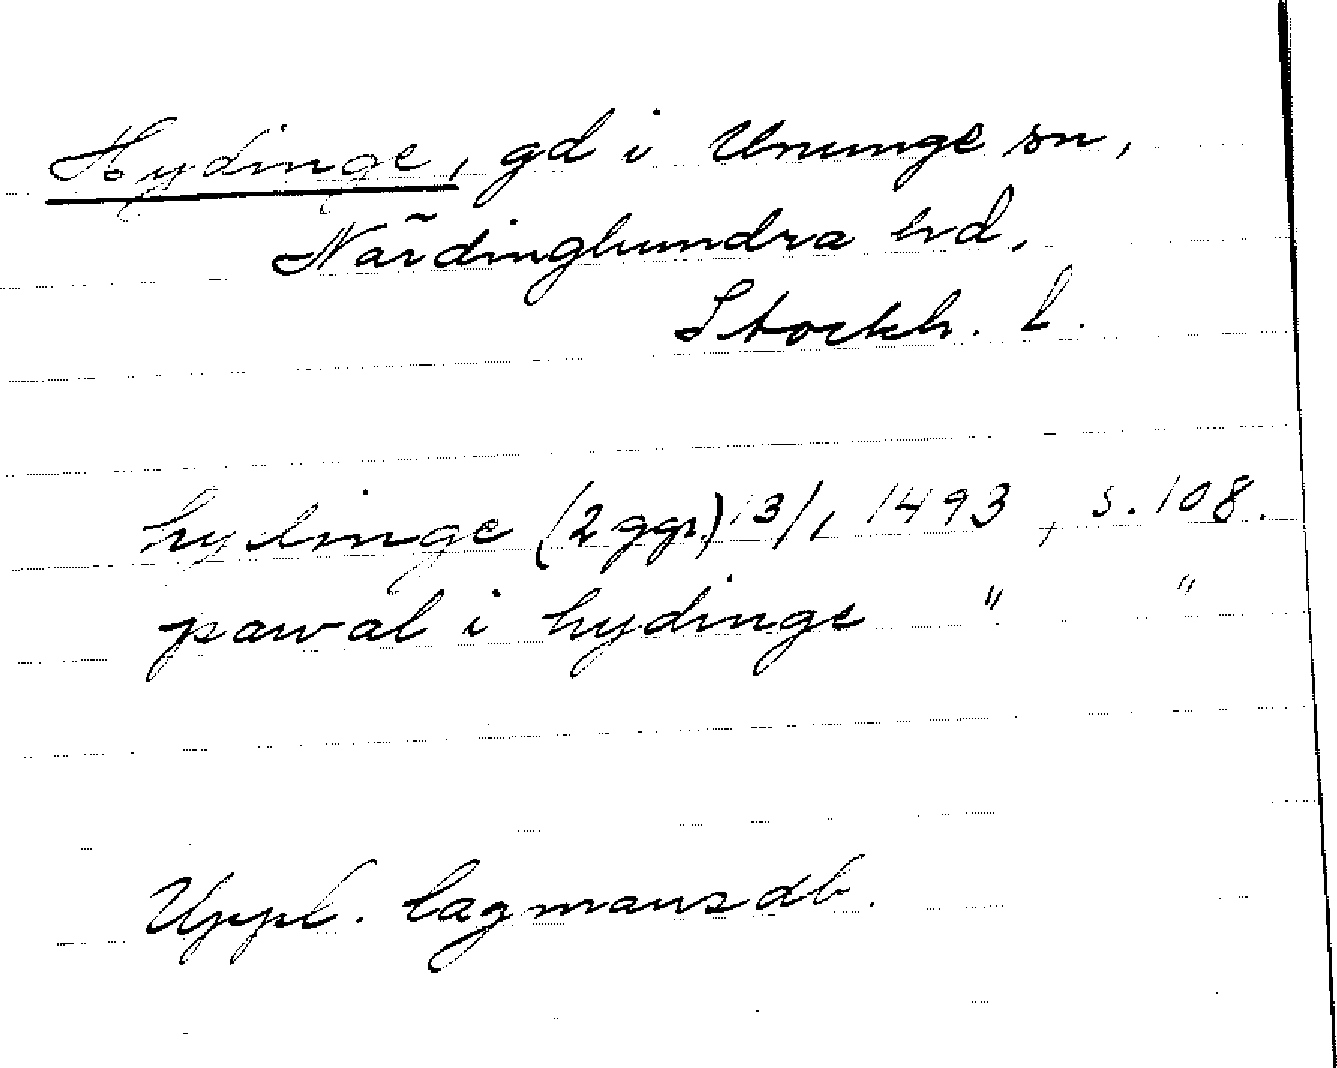 Hydinge, gd i Ununge sn,
Närdinghundra hd,
Stockh. l.
hylinge (2 ggr.) 13/1 1493, s. 108.
pawal i hydinge " "
Uppl. lagmansdb.